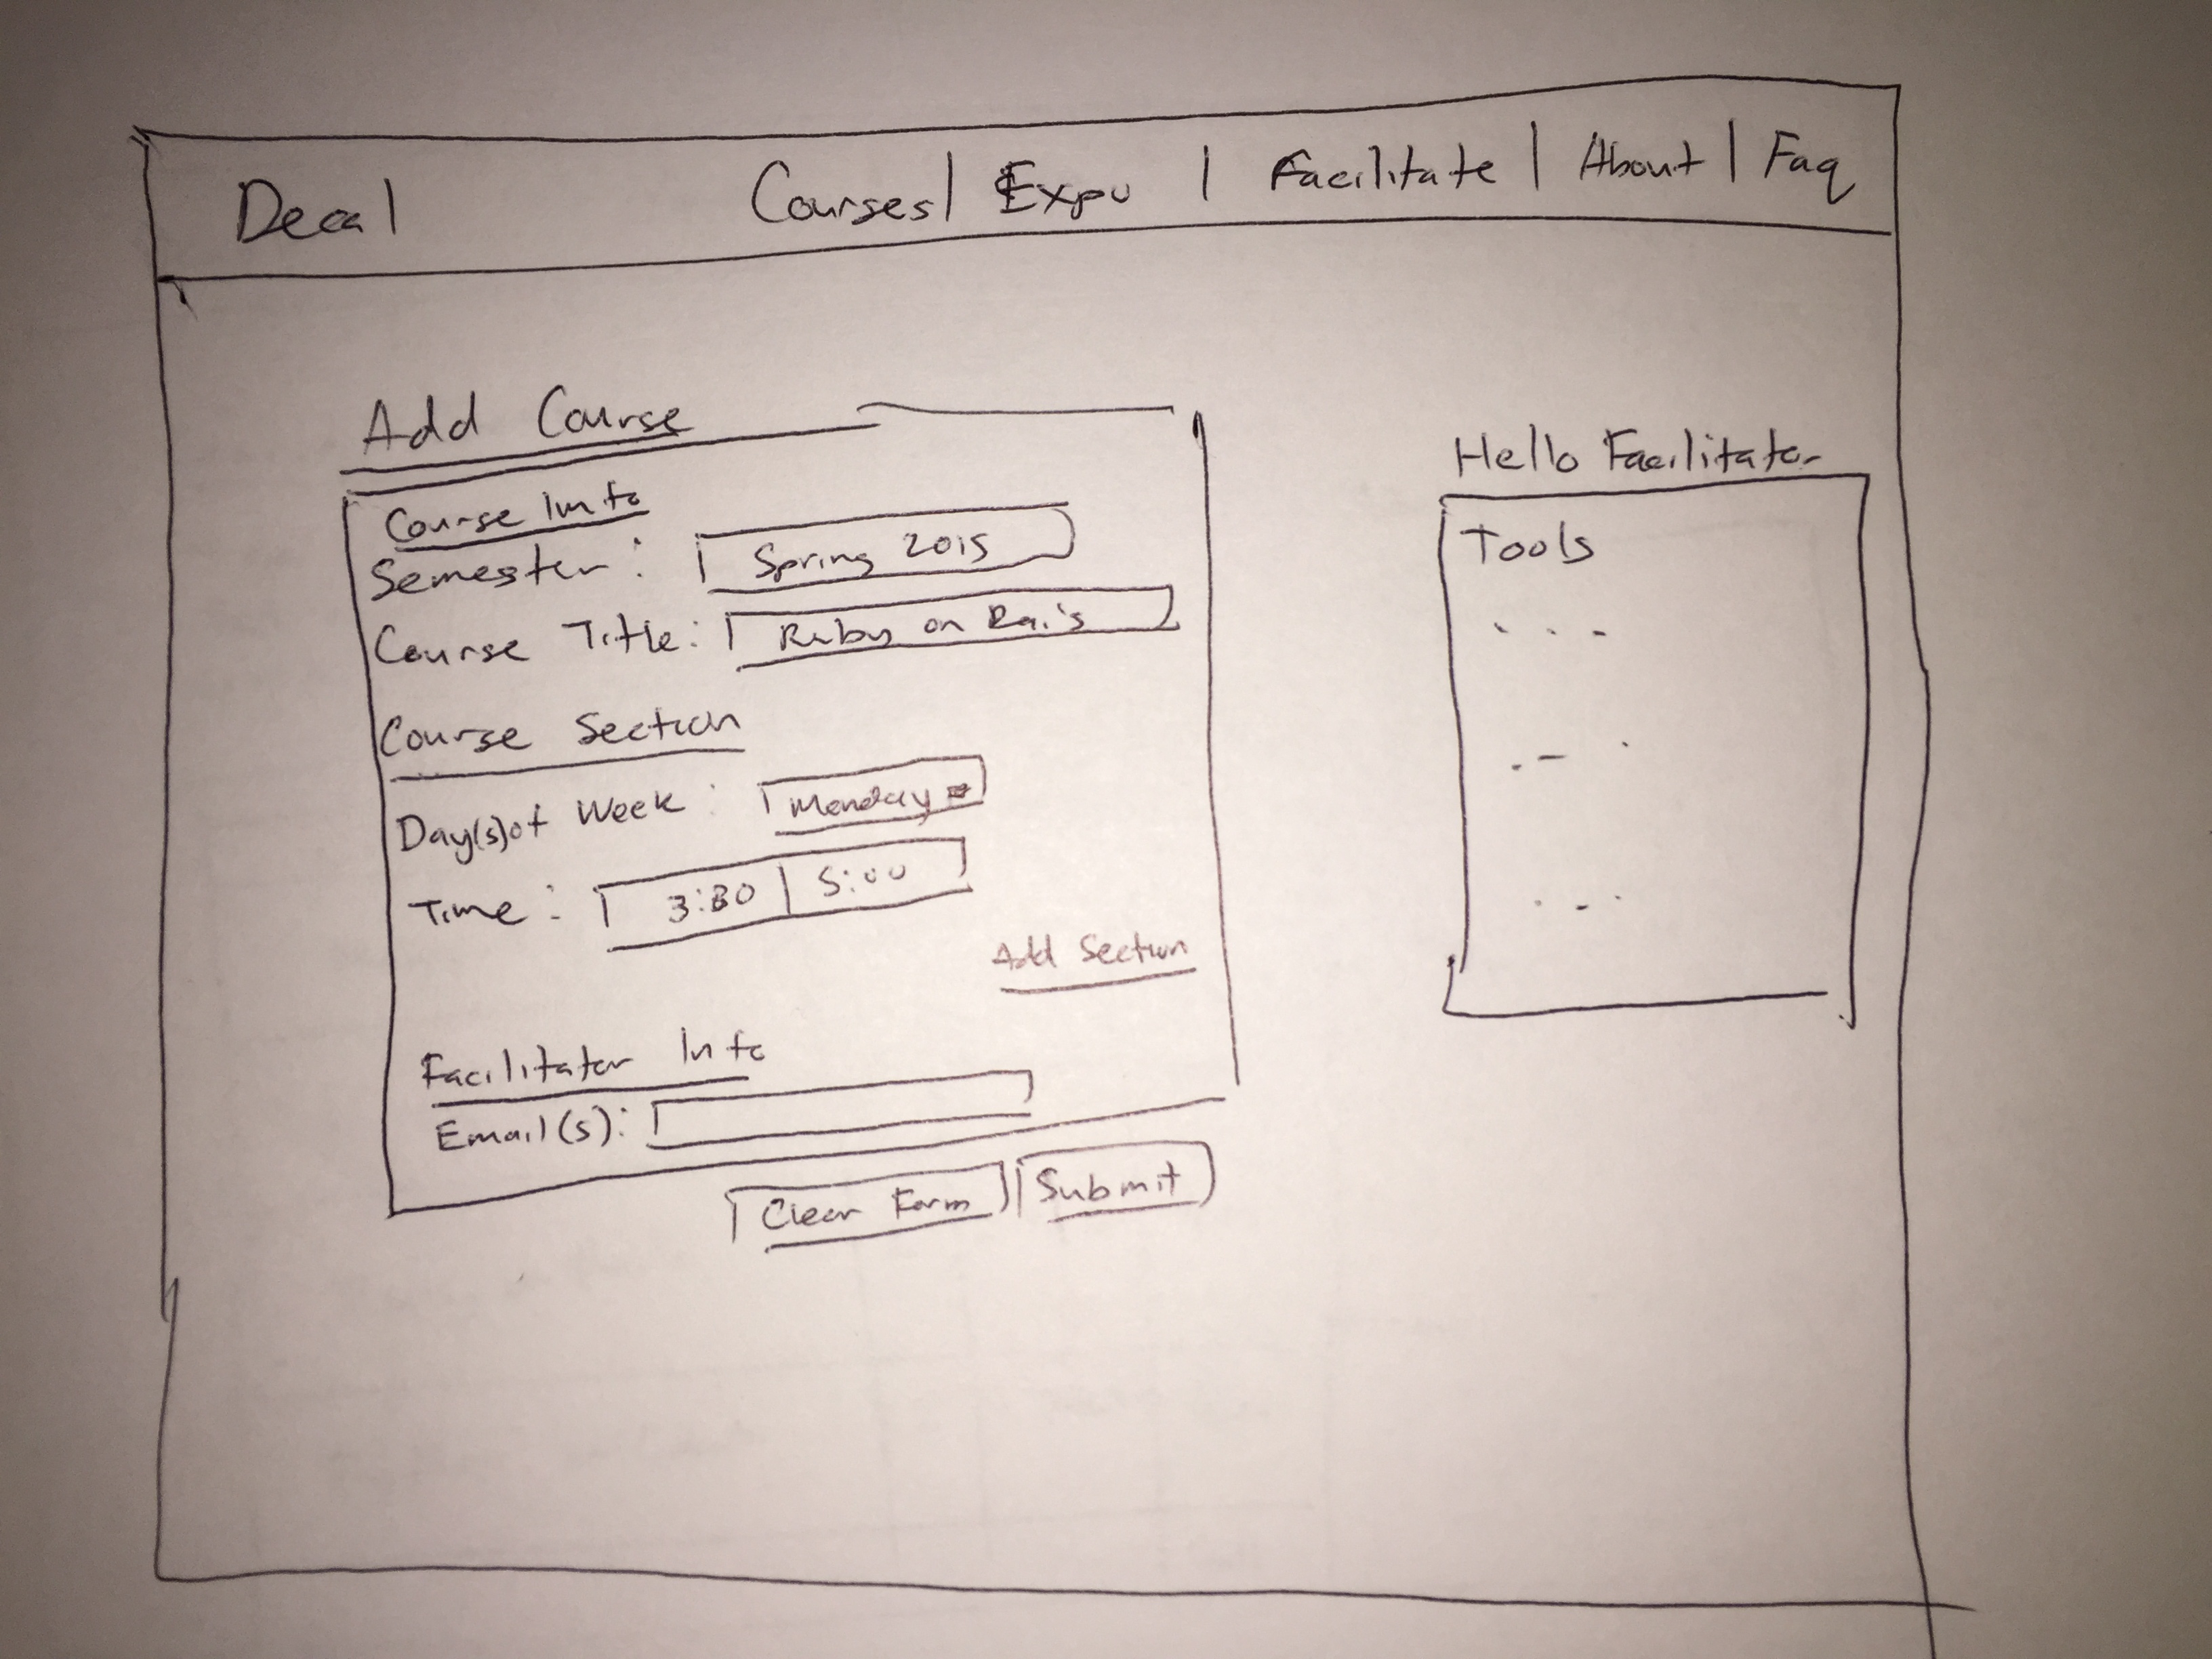 Decal Courses | Expo | Facilitate | About | Faq
Add Course
Course Info
Semester: Spring 2015
Course Title: Ruby on Rails
Course Section
Day(s) of Week: Monday
Time: 3:30 | 5:00
Add Section
Facilitator Info
Email(s):
Clear Form Submit
Hello Facilitator
Tools